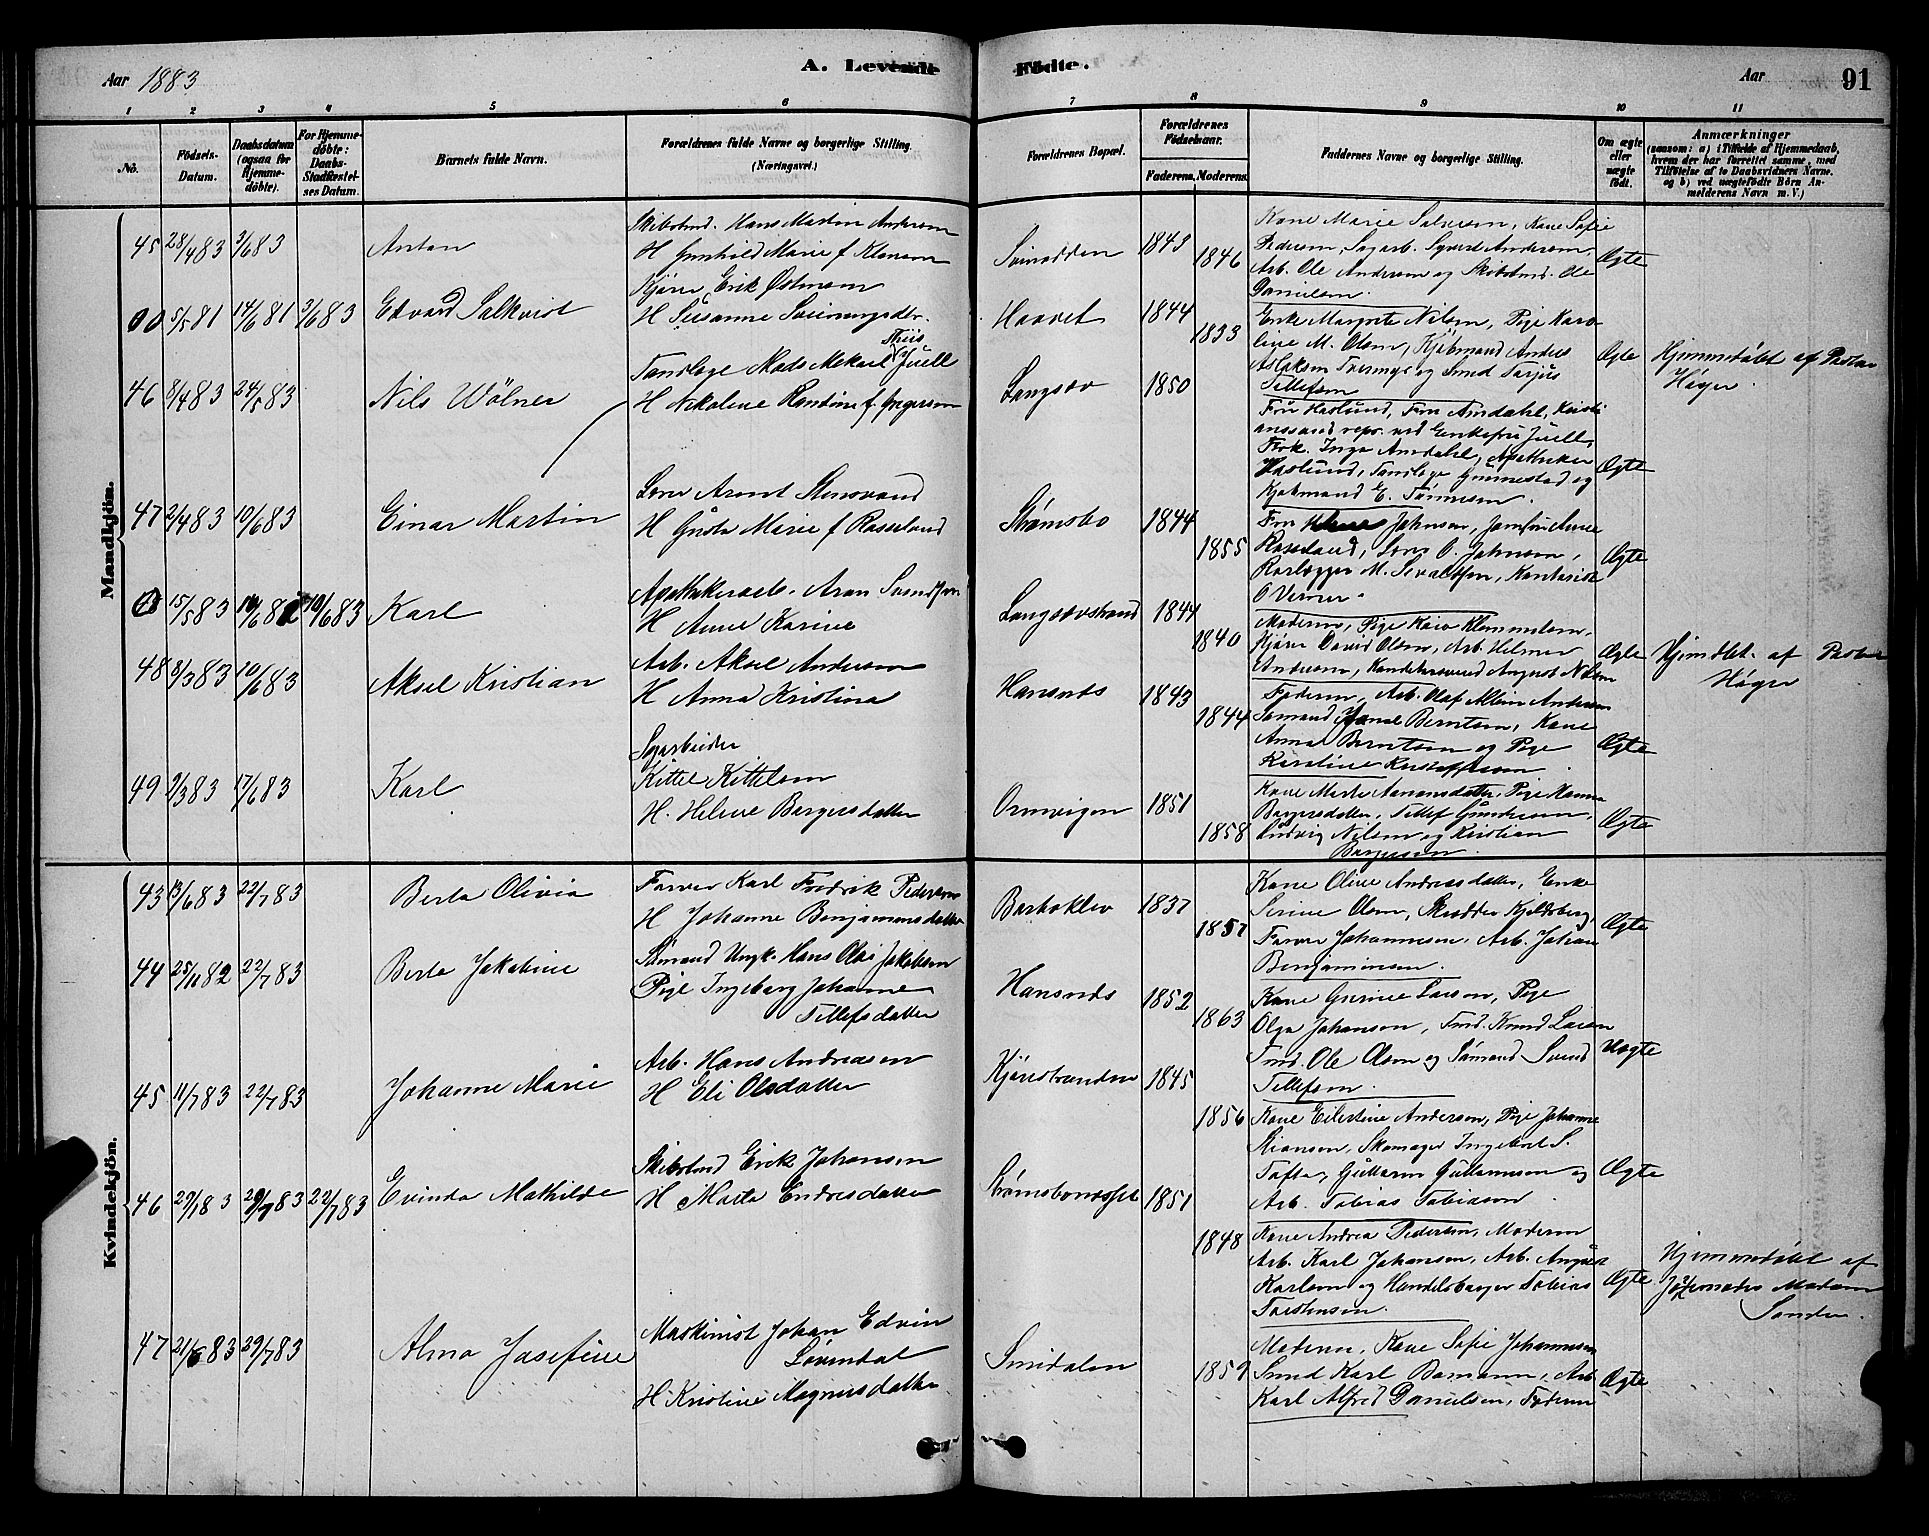 Aar 1883
A. Levende
Födte.
Aar
91
1
2
3
4
5
6
7
8
9
10
11
No.
Födsels-
Datum.
Daabsdatum
(ogsaa for
Hjemme-
döbte).
For Hjemme-
döbte:
Daabs-
Stadfæstel-
ses Datum.
Barnets fulde Navn.
Forældrenes fulde Navne og borgerlige Stilling.
(Næringsvei.)
Forældrenes Bopæl.
Forældrenes
Födselsaar.
Faderens.
Moderens.
Faddernes Navne og borgerlige Stilling.
Om ægte
eller
uægte
födt.
Anmærkninger
(saasom: a) i Tilfælde af Hjemmedaab,
hvem der har forrettet samme, med
Tilföielse af to Daabsvidners Navne.
og b) ved uægtefödte Börn An-
melderens Navn m. V.)
Mandkjön.
45 28/4 83 3/6 83
Anton
Skibstmd. Hans Martin Andersen
H Gunhild Marie f Klausen
Svinodden
1843
1846
Kone Marie Salvesen, Kone Sofie
Pedersen, Sagarb. Syvert Andersen,
Arb. Ole Andersen og Skibstmd. Ole
Danielsen.
Ægte
5/5 81 14/6 81 3/6 83
Edvard Salkvist
Kjörer Erik Østmoen
H Susanne Sveinungsdtr.
Haavet
1844
1833
Enke Margrete Nilsen, Pige Karo-
line M. Olsen, Kjöbmand Anders
Aslaksen Tveringe og Smed Tarjus
Tellefsen
Ægte
Hjemmedöbt af Pastor
Höyer.
46 8/4 83 24/5 83
Nils Wölner
Tandlæge Mads Mekael Thiis Juell
H Nikoline Randine f. Gregersen
Langsæv
1850
Fru Haslund, Fru Amdahl, Kristi-
anssand repr. ved Enkefru Juell,
Frøk. Inga Amdahl, Apotheker
Haslund, Tandlæge Gunnestad og
Kjøbmand E. Tönnesen.
Ægte
47 2/4 83 10/6 83
Einar Martin
Lons Arent Stensvand
H Gusta Marie f Rosseland
Strømsbo
1844
1855
Fru Johnson, Jomfru Anne
Rosseland, Lons O. Johnsen,
M. Sivertsen, Kontorist
O Verner.
Ægte
15/5 83 10/6 83
Karl
Apothekerarb. Aron Svendsen
H Anne Karine
Langsævstrand
1844
1840
Moderen, Pige Kaia Klemmetsen,
Kjörer David Olsen, Arb. Helmer
Andersen, Konditorsvend August Nilsen
Ægte
Hjemdbt. af Pastor
Höyer
48 8/3 83 10/6 83
Aksel Kristian
Arb. Aksel Andersen
H Anna Kristina
Hansnæs
1843
1844
Faderen, Arb. Olaf Albin Andersen
Sømand Berntsen, Kone
Anna Berntsen og Pige
Karoline Kristoffersen.
Ægte
49 2/3 83 17/6 83
Karl
Sagarbeider
Kittel Kittelsen
H. Helene Børgersdatter
Ormvigen
1851
1858
Kone Marte Aanonsdatter, Pige Hanna
Børgersdatter, Tellef Gundersen,
Ludvig Nilsen og Kristian
Børgersen.
Ægte
Kvindekjön.
43 13/6 83 22/7 83
Berta Olivia
Farver Karl Fredrik Pedersen
H Johanne Benjaminsdatter
Barboklev
1837
1857
Kone Oline Andreasdatter, Enke
Serine Olsen, Skrædder Kjeldsberg,
Farver Johannesen, Arb. Johan
Benjaminsen.
Ægte
44 25/11 82 22/7 83
Berta Jakobine
Sömand Ungk. Hans Olai Jakobsen
Pige Ingeborg Johanne
Tellefsdatter
Hansnæs
1852
1863
Kone Gurine Larsen, Pige
Olga Johansen, Tmd. Knud Larsen
Tmd. Ole Olsen og Sömand Svend
Tellefsen.
Uægte
45 11/7 83 22/7 83
Johanne Marie
Arb. Hans Andreasen
H Eli Olsdatter
Kjörestranden
1845
1856
Kone Eilertine Andersen, Pige Johanne
Stiansen, Skomager Ingebret S.
Tofte, Guttorm Guttormsen og
Arb. Tobias Tobiasen.
Ægte
46 29/1 83 29/7 83 22/7 83
Evinda Mathilde
Skibstmd Erik Johansen
H Marta Endresdatter
Strømsbonæsset
1851
1848
Kone Andrea Pedersen, Moderen
Arb. Karl Johansen, Arb. August
Karlsen og Handelsborger Tobias
Torstensen.
Ægte
Hjemmedöbt af
Jordemoder Madam
Sonden.
47 21/6 83 29/7 83
Alma Josefine
Maskinist Johan Edvin
Lövendal
H Kristine Magnusdatter
Smidalen
1859
Moderen, Kone Sofie Johannesen
Smed Karl Bomann, Arb.
Karl Alfred Danielsen, Faderen
Ægte